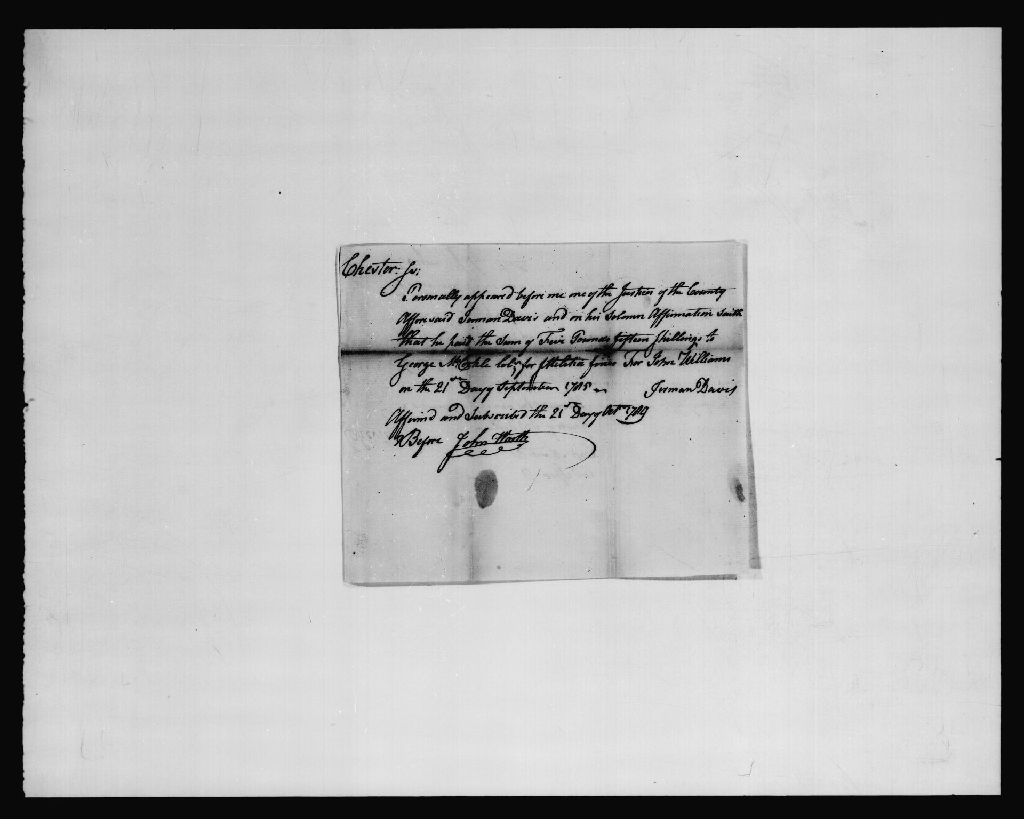 Chester. Ss:
Personally appeared before me one of the Justices of the County
Afforesaid Jerman Davis and on his solemn Affirmation saith
that he paid the Sum of Five Pounds fifteen Shillings to
George Mc for Melitia fines For John Williams
on the 21st Day of September 1785
Jerman Davis
Affirmd and Subscribed the 21st Day of Octr 1789
Before John